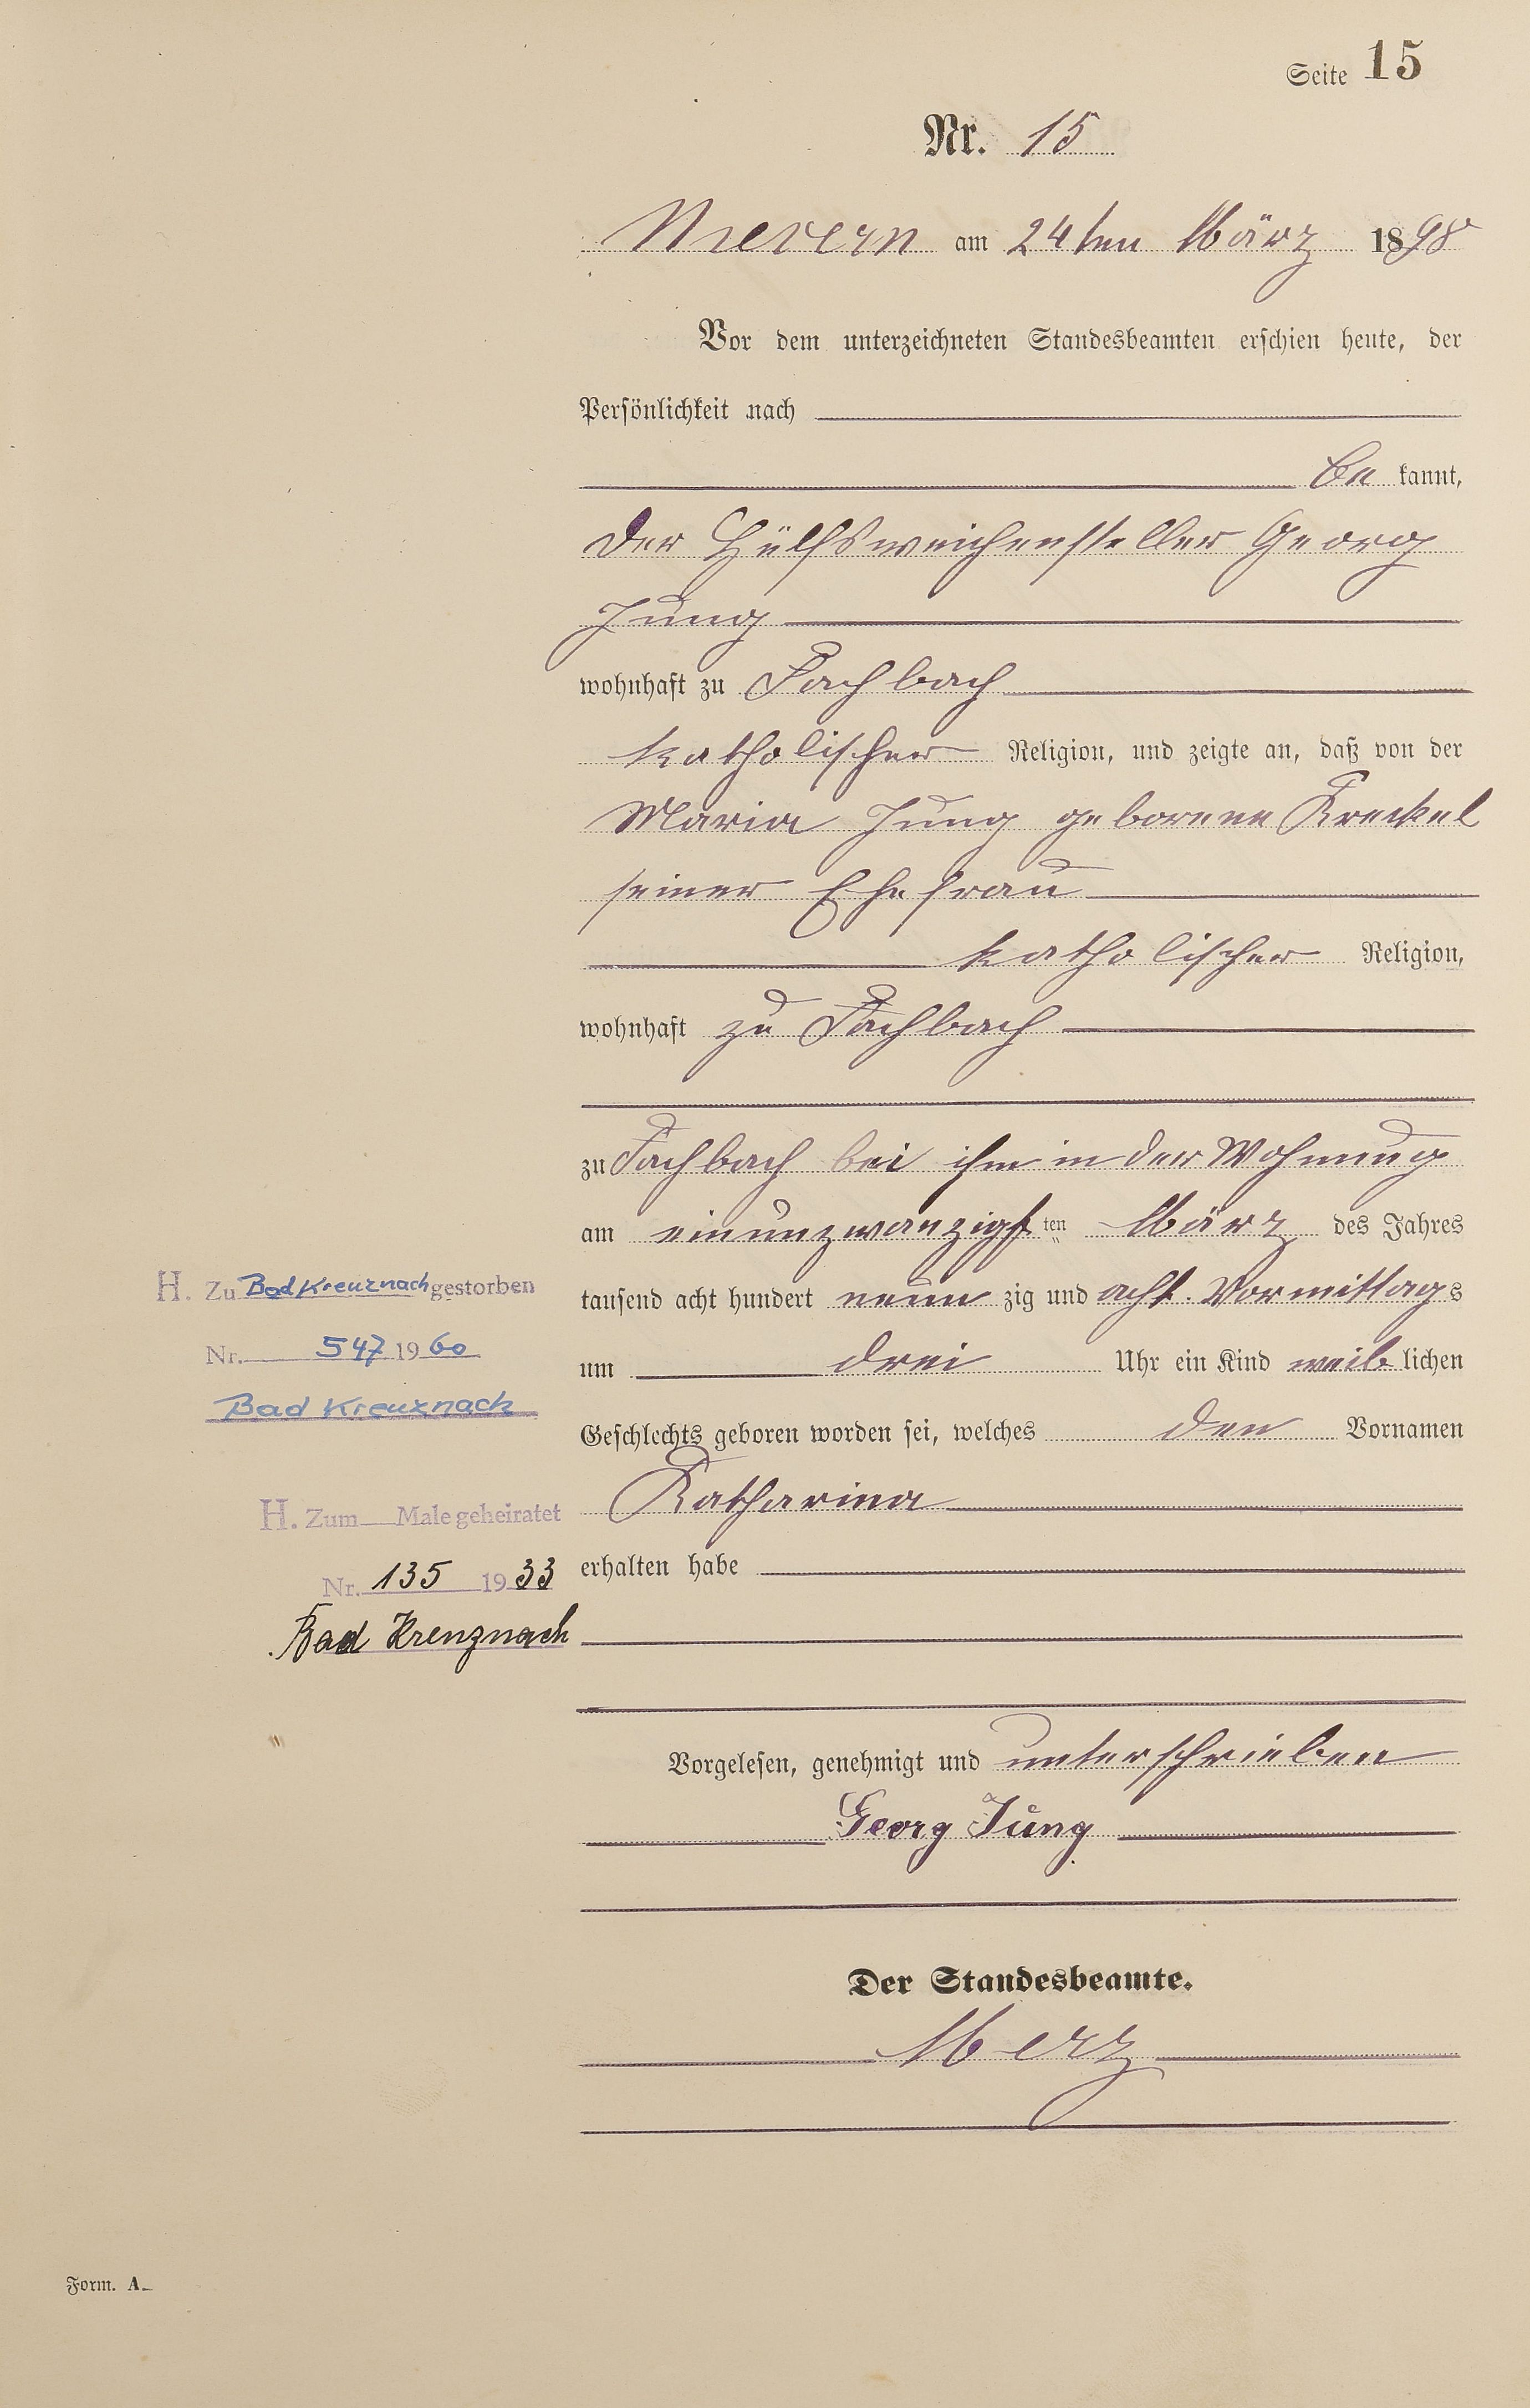 Seite 15
Nr. 15
Nievern am 24ten März 1898
Vor dem unterzeichneten Standesbeamten erschien heute, der
Persönlichkeit nach
be kannt,
der Hülfsweichensteller Georg
Jung
wohnhaft zu Fachbach
katholischer Religion, und zeigte an, daß von der
Maria Jung geborene Kreckel
seiner Ehefrau
katholischer Religion,
wohnhaft zu Fachbach
zu Fachbach bei ihm in der Wohnung
am einunzwanzigsten März des Jahres
tausend acht hundert neun zig und acht Vormittags
um drei Uhr ein Kind weiblichen
Geschlechts geboren worden sei, welches den Vornamen
Katharina
erhalten habe
Vorgelesen, genehmigt und unterschrieben
Georg Jung
Der Standesbeamte.
Merz
H. Zu Bad Kreuznach gestorben
Nr. 547 1960
Bad Kreuznach
H. Zum Male geheiratet
Nr. 135 1933
Bad Kreuznach
Form. A.